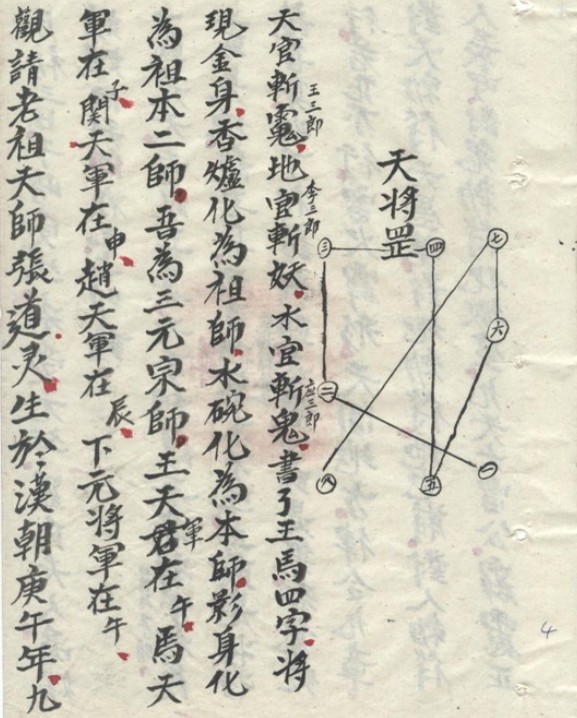 天将罡
七
四
三
六
二
一
五
八
天官斬地官斬妖水官斬鬼書了王馬四字将
王三郎
李三郎
应三郎
現金身香爐化為祖師水碗化為本師影身化
為祖本二師吾為三元宗師王天君軍在午馬天
軍在子関天軍在申趙天軍在辰下元将軍在午
觀請老祖天師張道灵生於漢朝庚午年九
4